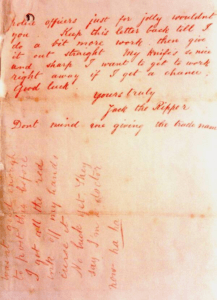 officers just for jolly wouldnt
you. Keep this letter back till I
do a bit more work then give
it out straight. My knife's so nice
and sharp I want to get to work
right away if I get a chance.
Good luck.
Yours truly
Jack the Ripper
Dont mind me giving the trade name
to post this before
I got all the red
ink off my hands
curse it.
No luck yet. They
say I'm a doctor
now ha ha